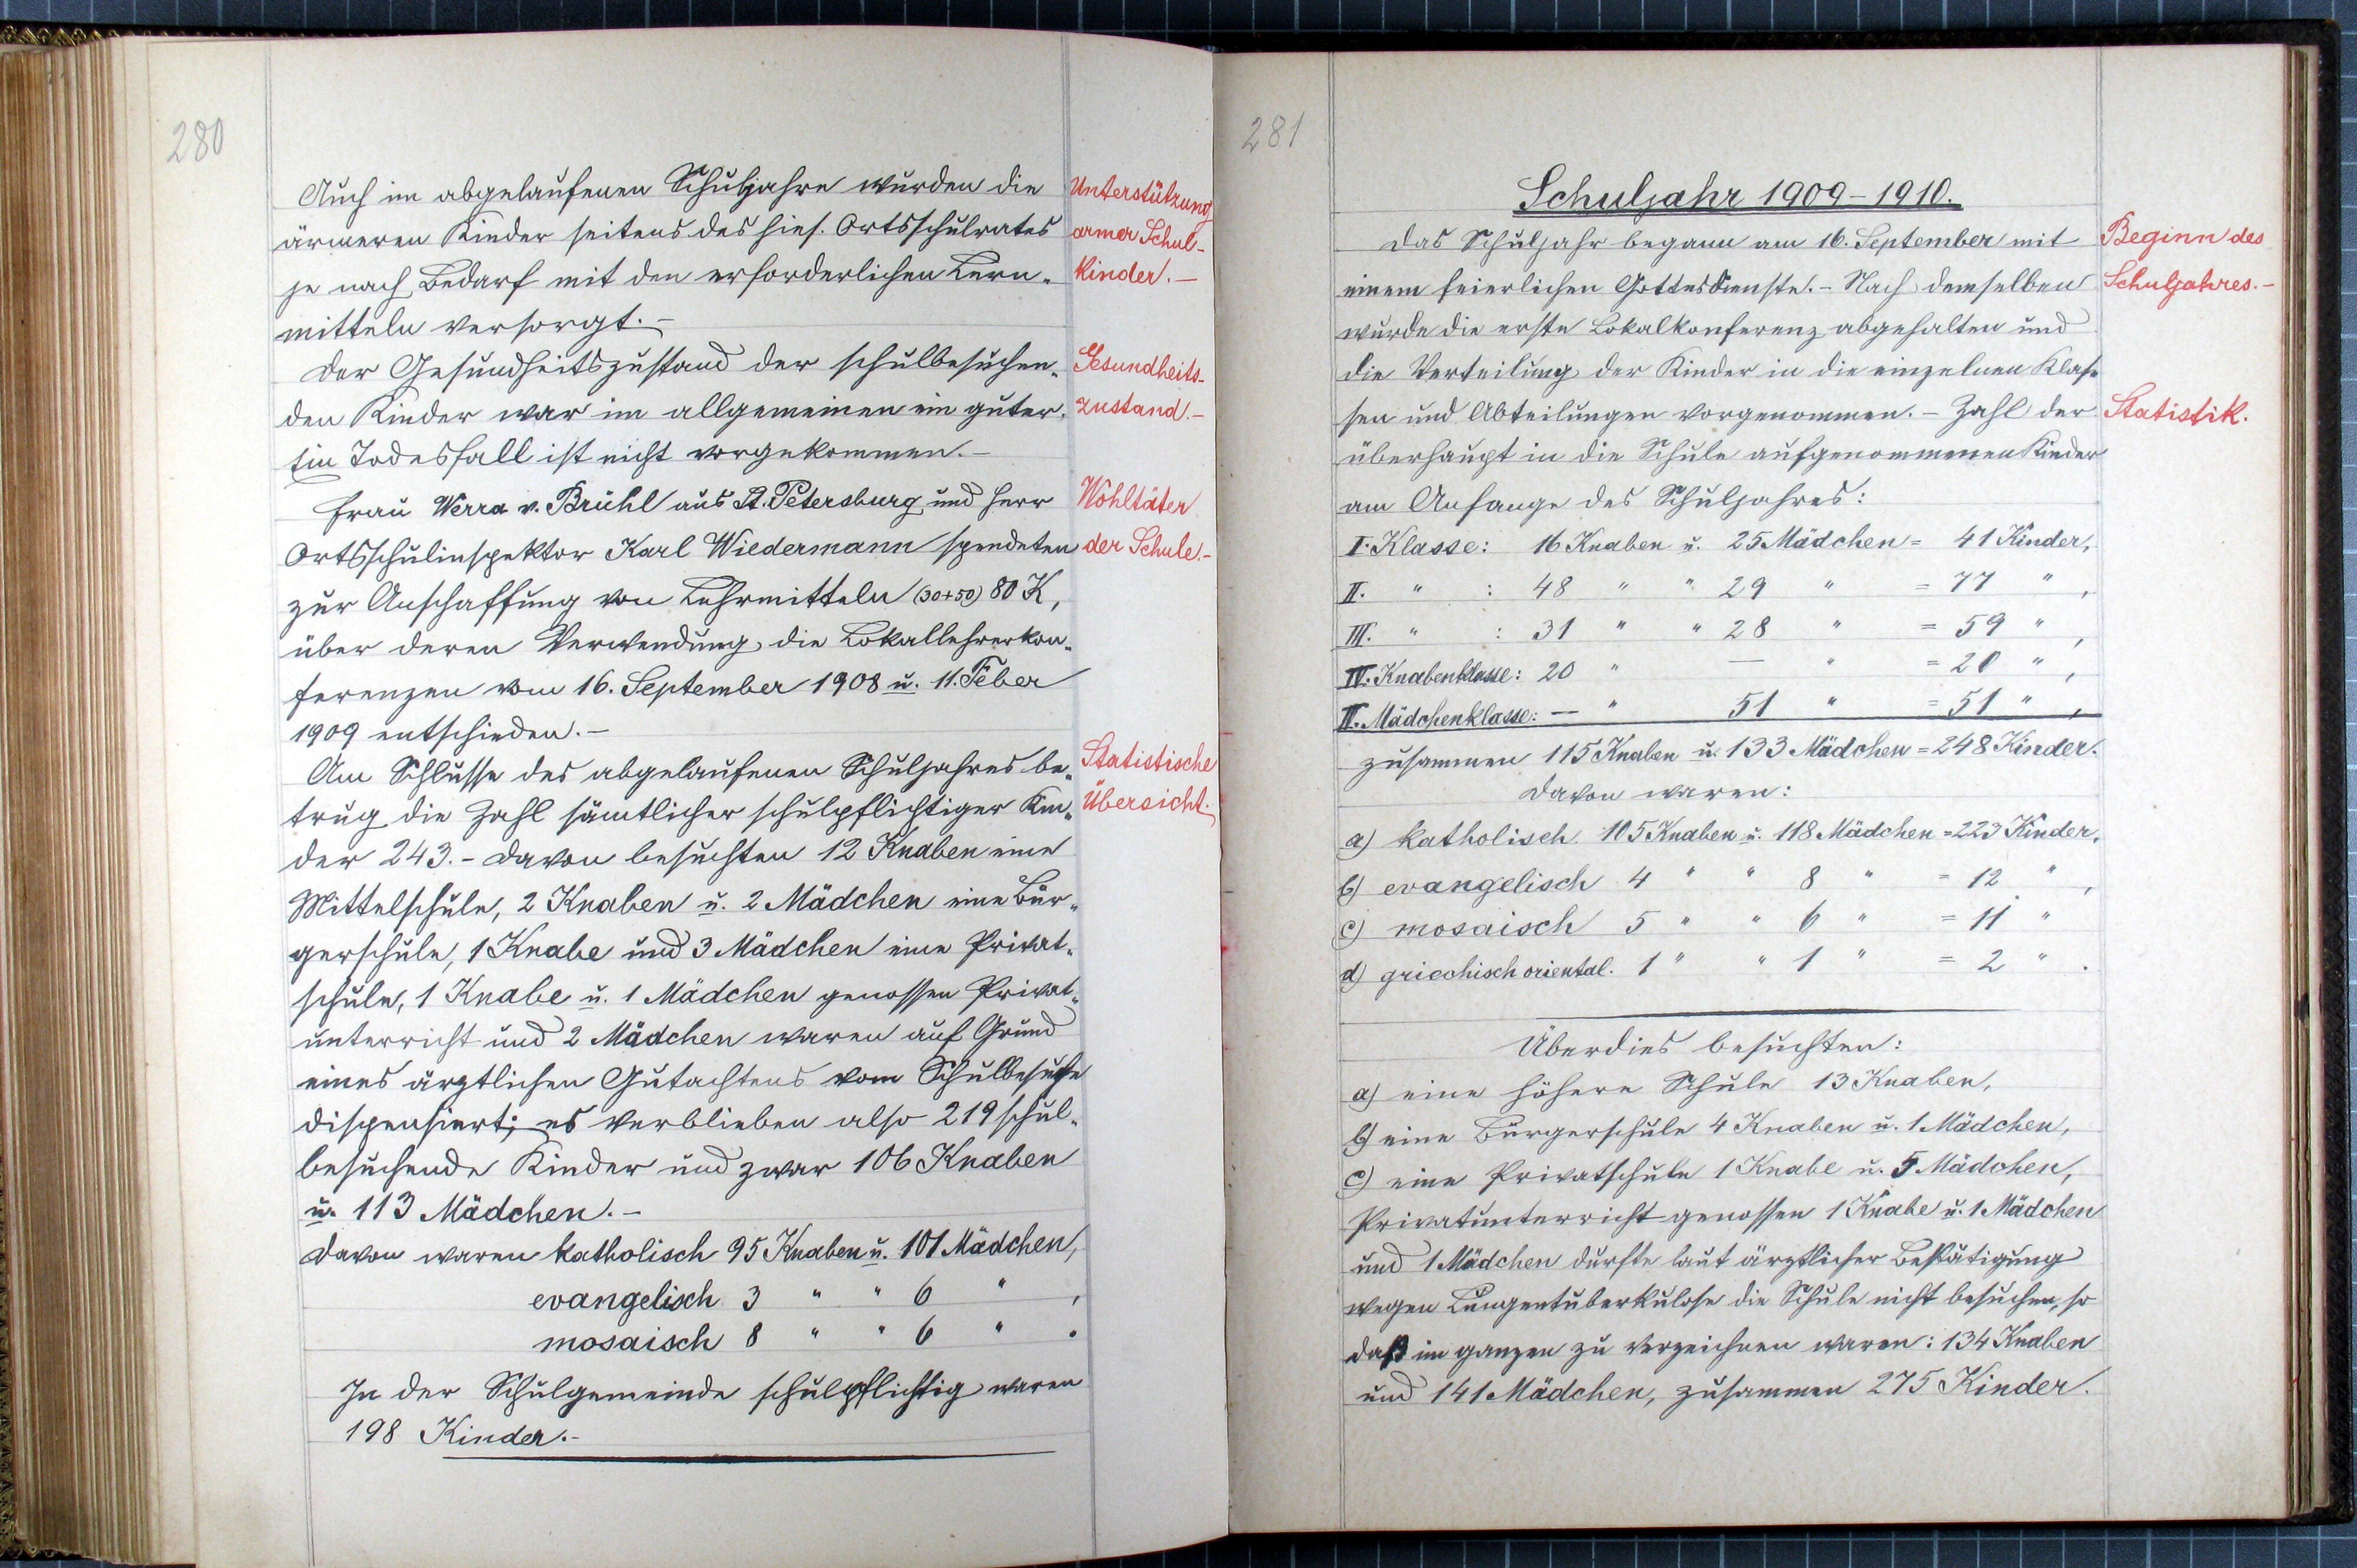 280
Auch im abgelaufenen Schuljahre wurden die
Unterstützung
ärmeren Kinder seitens des hies. Ortsschulrates
armer Schul-
je nach Bedarf mit den erforderlichen Lern-
kinder.-
mitteln versorgt.-
Der Gesundheitszustand der schulbesuchen-
Gesundheits-
den Kinder war im allgemeinen ein guter.
zustand.-
Ein Todesfall ist nicht vorgekommen.-
Frau Werra v. Brühl aus St. Petersburg und Herr
Wohltäter
Ortsschulinspektor Karl Wiedermann spendeten
der Schule.-
zur Anschaffung von Lehrmitteln (30+50) 80 K,
über deren Verwendung die Lokallehrerkon-
ferenzen vom 16. September 1908 u. 11. Feber
1909 entschieden.-
Am Schlusse des abgelaufenen Schuljahres be-
Statistische
trug die Zahl sämtlicher schulpflichtiger Kin-
Übersicht.
der 243.- Davon besuchten 12 Knaben eine
Mittelschule, 2 Knaben u. 2 Mädchen eine Bür-
gerschule, 1 Knabe und 3 Mädchen eine Privat-
schule, 1 Knabe u. 1 Mädchen genossen Privat-
unterricht und 2 Mädchen waren auf Grund
eines ärztlichen Gutachtens vom Schulbesuche
dispensiert; es verblieben also 219 schul-
besuchende Kinder und zwar 106 Knaben
u. 113 Mädchen.-
Davon waren katholisch 95 Knaben u. 101 Mädchen,
evangelisch 3 " " 6 " ,
mosaisch 8 " " 6 " .
In der Schulgemeinde schulpflichtig waren
198 Kinder.-
281
Schuljahr 1909-1910.
Das Schuljahr begann am 16. September mit
Beginn des
einem feierlichen Gottesdienste.- Nach demselben
Schuljahres.-
wurde die erste Lokalkonferenz abgehalten und
die Verteilung der Kinder in die einzelnen Klas-
sen und Abteilungen vorgenommen.- Zahl der
Statistik.
überhaupt in die Schule aufgenommenen Kinder
am Anfange des Schuljahres:
I. Klasse: 16 Knaben u. 25 Mädchen = 41 Kinder,
II. " : 48 " " 29 " = 77 " ,
III. " : 31 " " 28 " = 59 " ,
IV. Knabenklasse: 20 " — " = 20 " ,
IV. Mädchenklasse: — " 51 " = 51 " ,
zusammen 115 Knaben u. 133 Mädchen = 248 Kinder.
Davon waren:
a) katholisch 105 Knaben u. 118 Mädchen = 223 Kinder,
b) evangelisch 4 " " 8 " = 12 " ,
c) mosaisch 5 " " 6 " = 11 "
d) griechisch oriental. 1 " " 1 " = 2 " .
Überdies besuchten:
a) eine höhere Schule 13 Knaben,
b) eine Bürgerschule 4 Knaben u. 1 Mädchen,
c) eine Privatschule 1 Knabe u. 5 Mädchen,
Privatunterricht genossen 1 Knabe u. 1 Mädchen
und 1 Mädchen durfte laut ärztlicher Bestätigung
wegen Lungentuberkulose die Schule nicht besuchen, so
daß im ganzen zu verzeichnen waren: 134 Knaben
und 141 Mädchen, zusammen 275 Kinder.